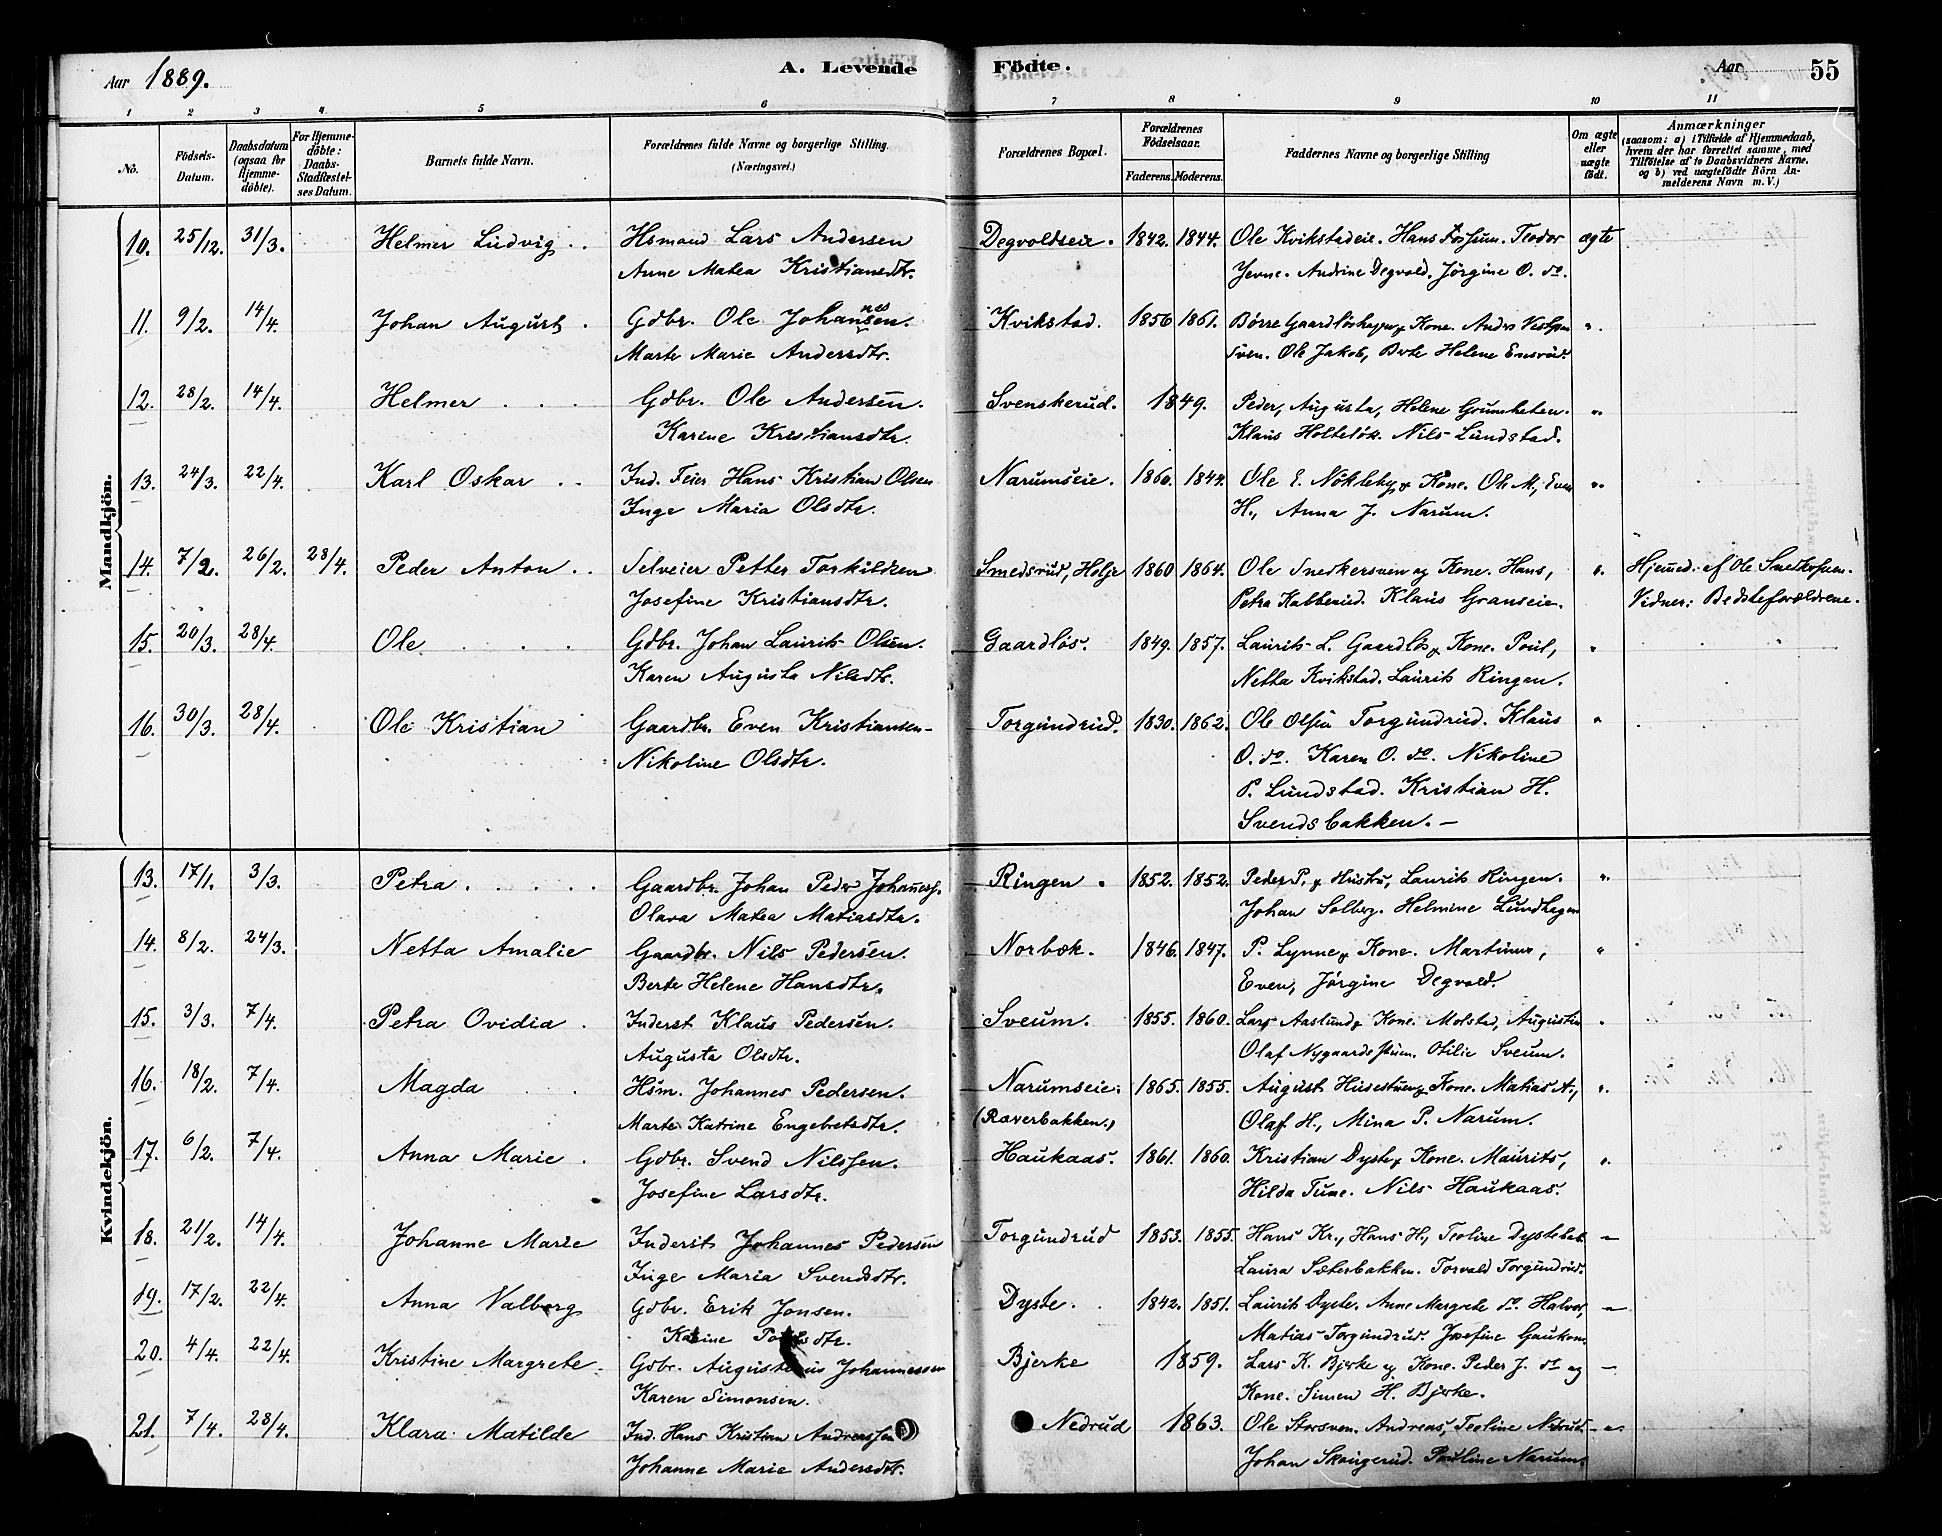 Aar 1889. A. Levende Födte. Aar 55
1 2 3 4. 5 6 7 8 9 10 11
No. Födsels-Datum. Daabsdatum (ogsaa for Hjemme-döbte). For Hjemme-döbte: Daabs-Stadfæstel-ses Datum. Barnets fulde Navn. Forældrenes fulde Navne og borgerlige Stilling. (Næringsvei.) Forældrenes Bopæl. Forældrenes Födselsaar. Faderens. Moderens. Faddernes Navne og borgerlige Stilling Om ægte eller uægte födt. Anmærkninger (saasom: a) i Tilfælde af Hjemmedaab, hvem der har forrettet samme, med Tilföielse af to Daabsvidners Navne, og b) ved uægtefödte Börn An-melderens Navn m. V.)
Mandkjön.
10. 25/12. 31/3. Helmer Ludvig . . Hsmand Lars Andersen Degvoldseie. 1842. 1844. Ole Kvikstadeie. Hans Fossum. Teodor ægte
Anne Matea Kristiansdtr. Jevne. Andrine Degvold. Jørgine O. do.
11. 9/2. 14/4. Johan August . Gdbr. Ole Johannesen. Kvikstad. 1856 1861. Børre Kone. Andr.
Marte Marie Andersdtr. Ole Jakob, Berte Helene Ensrud.
12. 28/2. 14/4. Helmer . . . Gdbr. Ole Andersen. Svenskerud. 1849. Peder, Augusta, Helene "
Karine Kristiansdtr. Klaus Nils Lundstad.
13. 24/3. 22/4. Karl Oskar . . Ind. Feier Hans Kristian Olsen Narumseie. 1860. 1844. Ole E. Nökleby & Kone. Ole M., Even "
Inge Maria Olsdtr. H., Anna J. Narum.
14. 7/2. 26/2. 28/4. Peder Anton . . Selveier Petter Torkildsen Smedsrud, 1860 1864. Ole Snedkersven og Kone. Hans, " Hjemmed. af Ole
Josefine Kristiansdtr. Petra Kalberud. Klaus Granseie. Vidner: Bedsteforældrene.
15. 20/3. 28/4. Ole . . . Gdbr. Johan Laurits Olsen. Gaardløs. 1849. 1857. Laurits L. Gaardløs & Kone. Poul, "
Karen Augusta Nilsdtr. Netta Kvikstad. Laurits Ringen.
16. 30/3. 28/4. Ole Kristian Gaardbr. Even Kristiansen Torgundrud. 1830. 1862. Ole Olsen Torgundrud. Klaus "
Nikoline Olsdtr. O. do. Karen O. do. Nikoline
P. Lundstad. Kristian H.
Svendsbakken. –
Kvindekjön.
13. 17/1. 3/3. Petra . . . . . Gaardbr. Johan Peder Johanness. Ringen . 1852. 1852. Peder P. & Hustru, Laurits Ringen. "
Olava Matea Matiasdtr. Johan Solberg. Helmine Lundhagen
14. 8/2. 24/3. Netta Amalie Gaardbr. Nils Pedersen. Norbæk. 1846. 1847. P. Lynne & Kone. Martinus, "
Berte Helene Hansdtr. Even, Jørgine Degvold.
15. 3/3. 7/4. Petra Ovidia . Inderst Klaus Pedersen. Sveum. 1855. 1860. Lars Aaslund & Kone. Molstad, "
Augusta Olsdtr. Olaf Otilie Sveum.
16. 18/2. 7/4. Magda Hsm. Johannes Pedersen. Narumseie. 1865. 1855. August Husestuen & Kone. Matias A., "
Marte Katrine Engebretsdtr. (Ræverbakken.) Olaf H., Mina P. Narum.
17. 6/2. 7/4. Anna Marie . Gdbr. Svend Nilssen. Haukaas. 1861. 1860. Kristian Dyste & Kone. Maurits, "
Josefine Larsdtr. Hilda Tune. Nils Haukaas.
18. 21/2. 14/4. Johanne Marie Inderst Johannes Pedersen Torgundrud 1853. 1855. Hans Kr., Hans H., Teoline –
Inge Maria Svendsdtr. Laura Sæterbakken. Torvald Torgundrud.
19. 17/2. 22/4. Anna Valborg Gdbr. Erik Jonsen. Dyste. 1842. 1851. Laurits Dyste. Anne Margrete do. Halvor, –
Karine Matias Torgundrud. Josefine
20. 4/4. 22/4. Kristine Margrete. Gdbr. Augustinus Johannessen Bjerke 1859. Lars K. Bjerke og Kone. Peder J. do og –
Karen Simonsen. Kone. Simen H. Bjerke.
21. 7/4. 28/4. Klara Matilde Ind. Hans Kristian Andreassen Nedrud 1863. Ole Storsven. Andreas, Teoline Nedrud. – " –
Johanne Marie Andersdtr. Johan Skougerud. Pauline Narum.